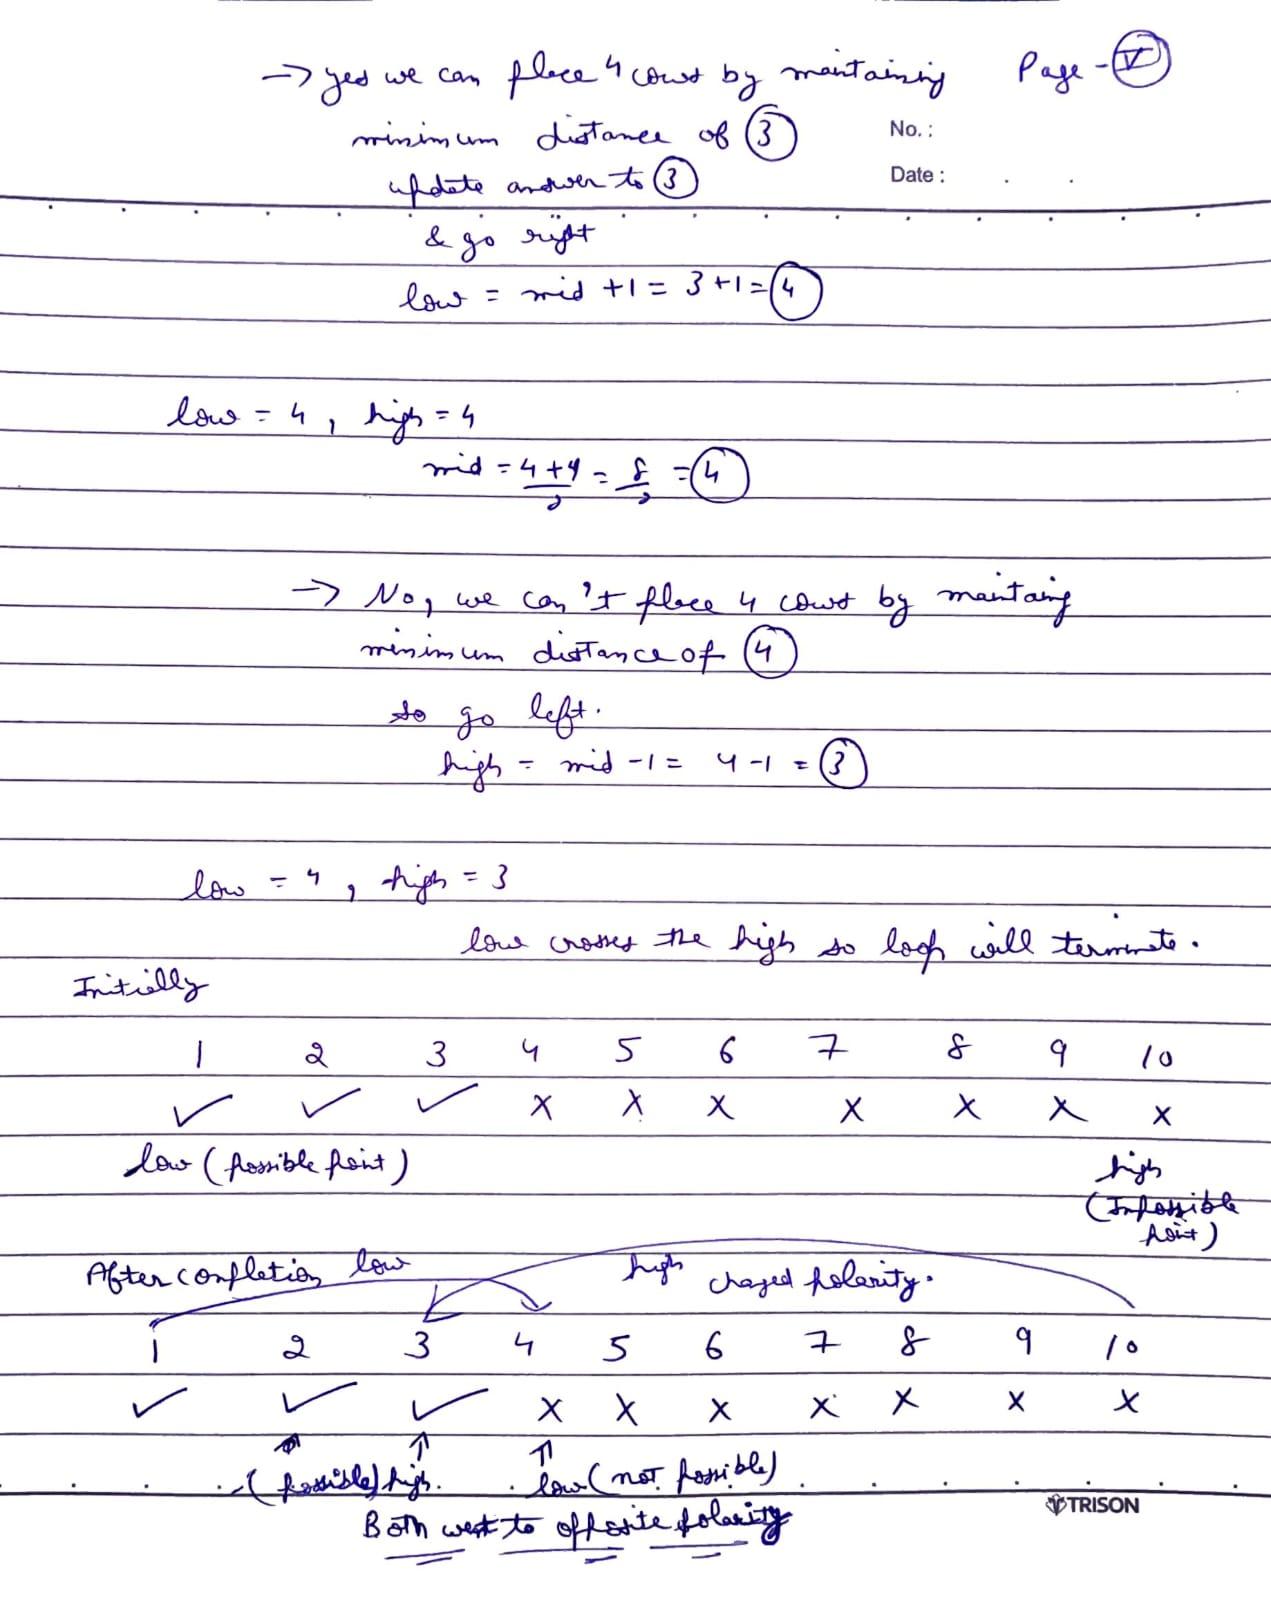 → yes we can place 4 cows by maintaining Page - V
minimum distance of 3 No. :
update answer to 3 Date : . .
& go right
low = mid + 1 = 3 + 1 = 4
low = 4 , high = 4
mid = 4 + 4 / 2 = 8 / 2 = 4
→ No, we can't place 4 cows by maintaing
minimum distance of 4
so go left.
high = mid - 1 = 4 - 1 = 3
low = 4 , high = 3
low crosses the high so loop will terminate.
Initially
1 2 3 4 5 6 7 8 9 10
✓ ✓ ✓ x x x x x x x
low (possible point) high
(Impossible
point)
After completion low high chaged polarity.
1 2 3 4 5 6 7 8 9 10
✓ ✓ ✓ x x x x x x x
(possible) high. low (not possible)
TRISON
Both went to opposite polarity